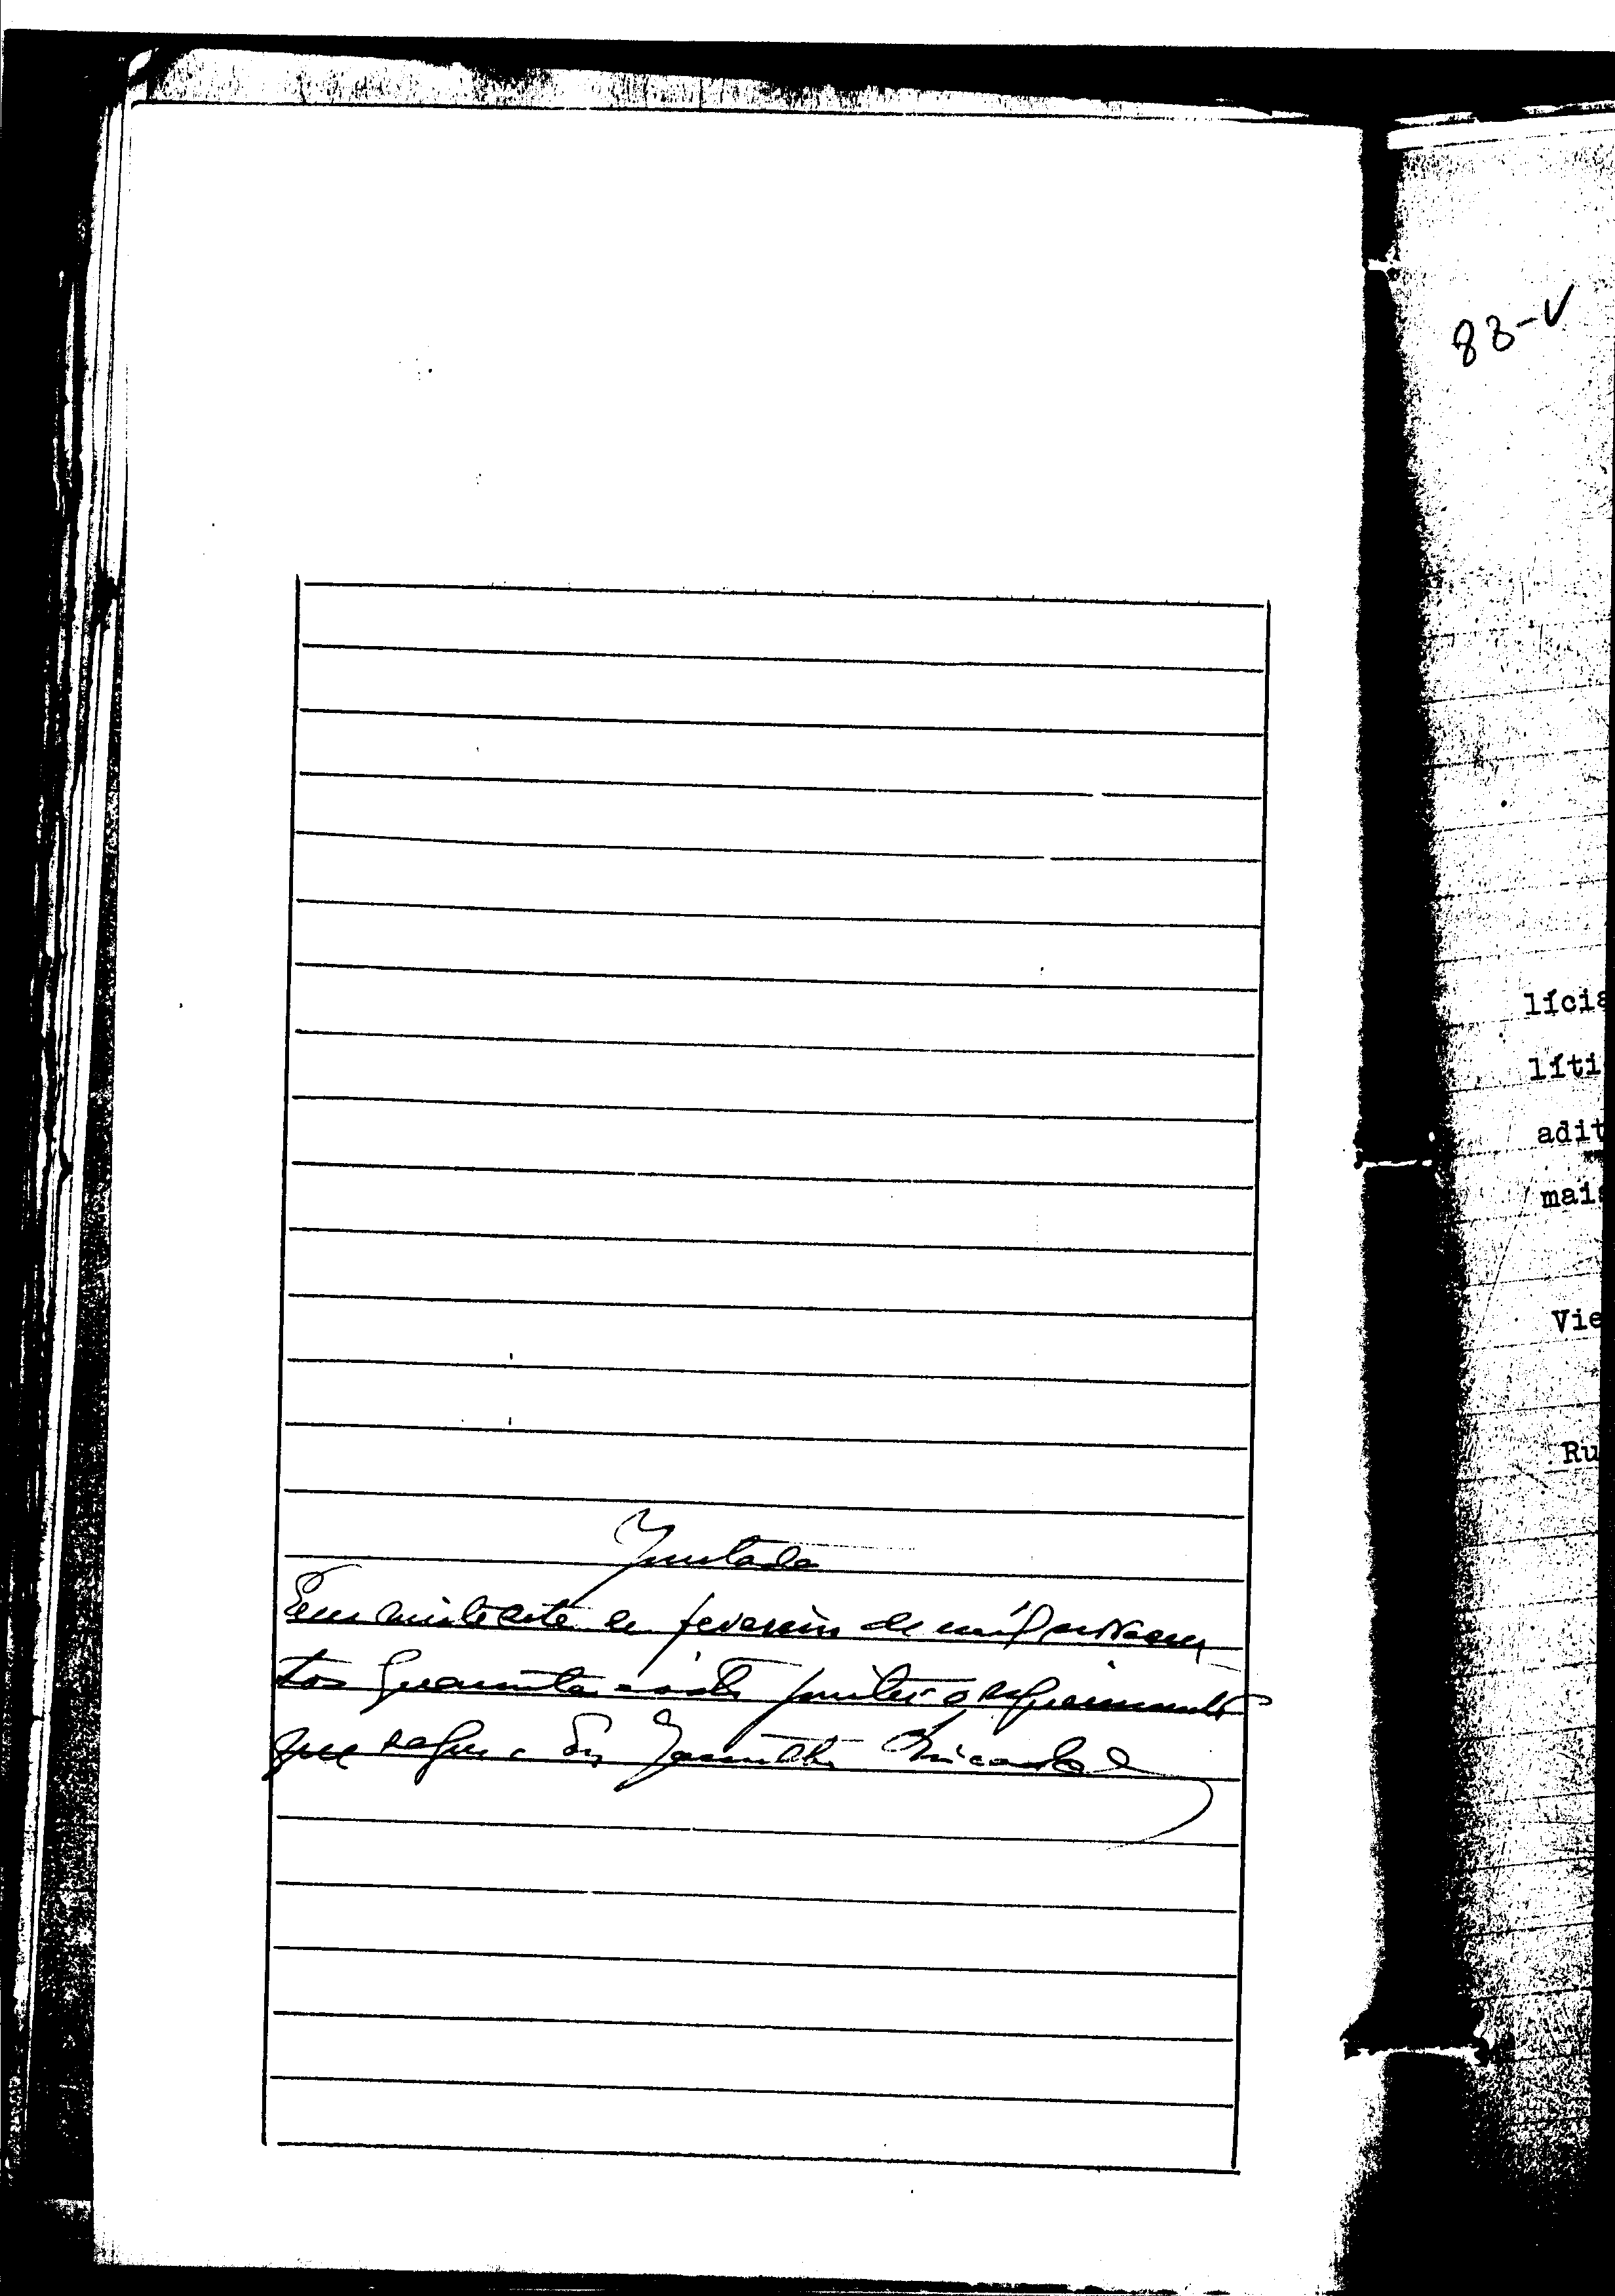 Juntada
Em vinte e sete de fevereiro de mil novecen-
tos quarenta e juntei o requerimento
que segue.
83-V
lícia
líti
adit
mais
Vie
Ru